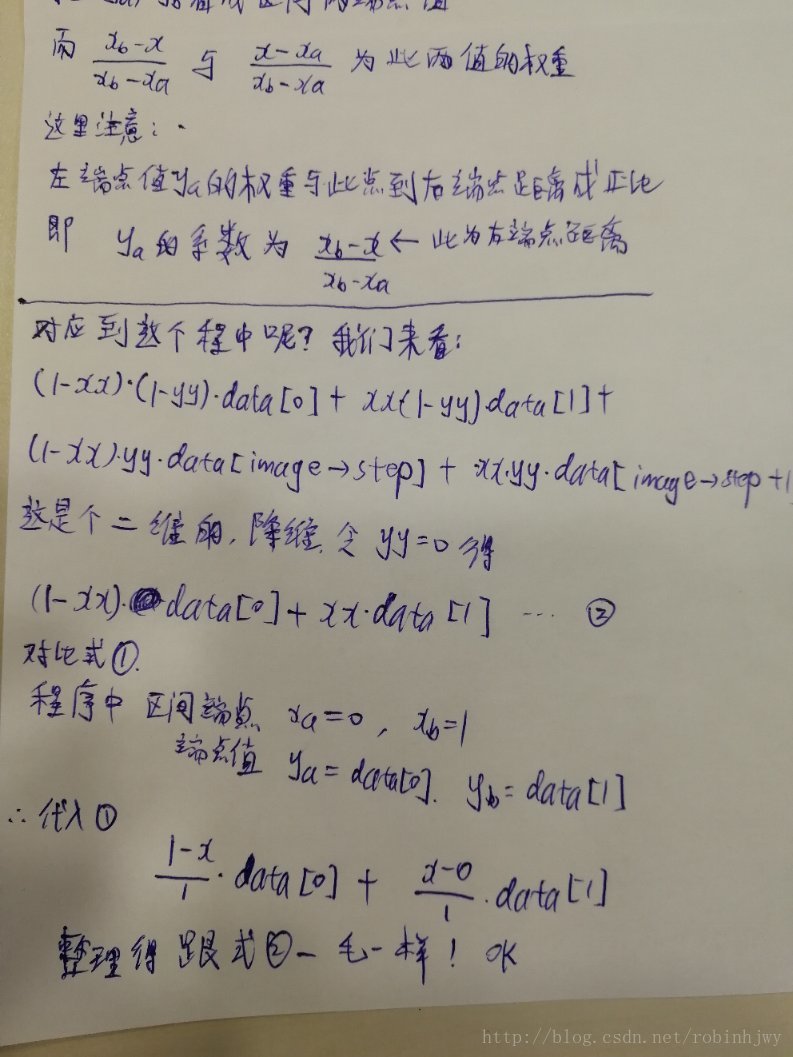 看成区间两端点值
而 (xb-x)/(xb-xa) 与 (x-xa)/(xb-xa) 为此两值的权重
这里注意:
左端点值ya的权重与此点到右端点距离成正比
即 ya的系数为 (xb-x)/(xb-xa) ← 此为右端点距离
对应到这个程中呢? 我们来看:
(1-xx)·(1-yy)·data[0] + xx·(1-yy)·data[1] +
(1-xx)·yy·data[image→step] + xx·yy·data[image→step+1
这是个二维的, 降维, 令 yy=0 得
(1-xx)·data[0] + xx·data[1] ... ②
对比式①.
程序中 区间端点 xa=0, xb=1
端点值 ya=data[0]. yb=data[1]
∴ 代入①
(1-x)/1·data[0] + (x-0)/1·data[1]
整理得 跟式②一毛一样! OK
http://blog.csdn.net/robinhjwy